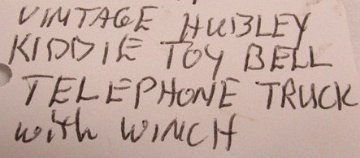 VINTAGE HUBLEY
KIDDIE TOY BELL
TELEPHONE TRUCK
with WINCH